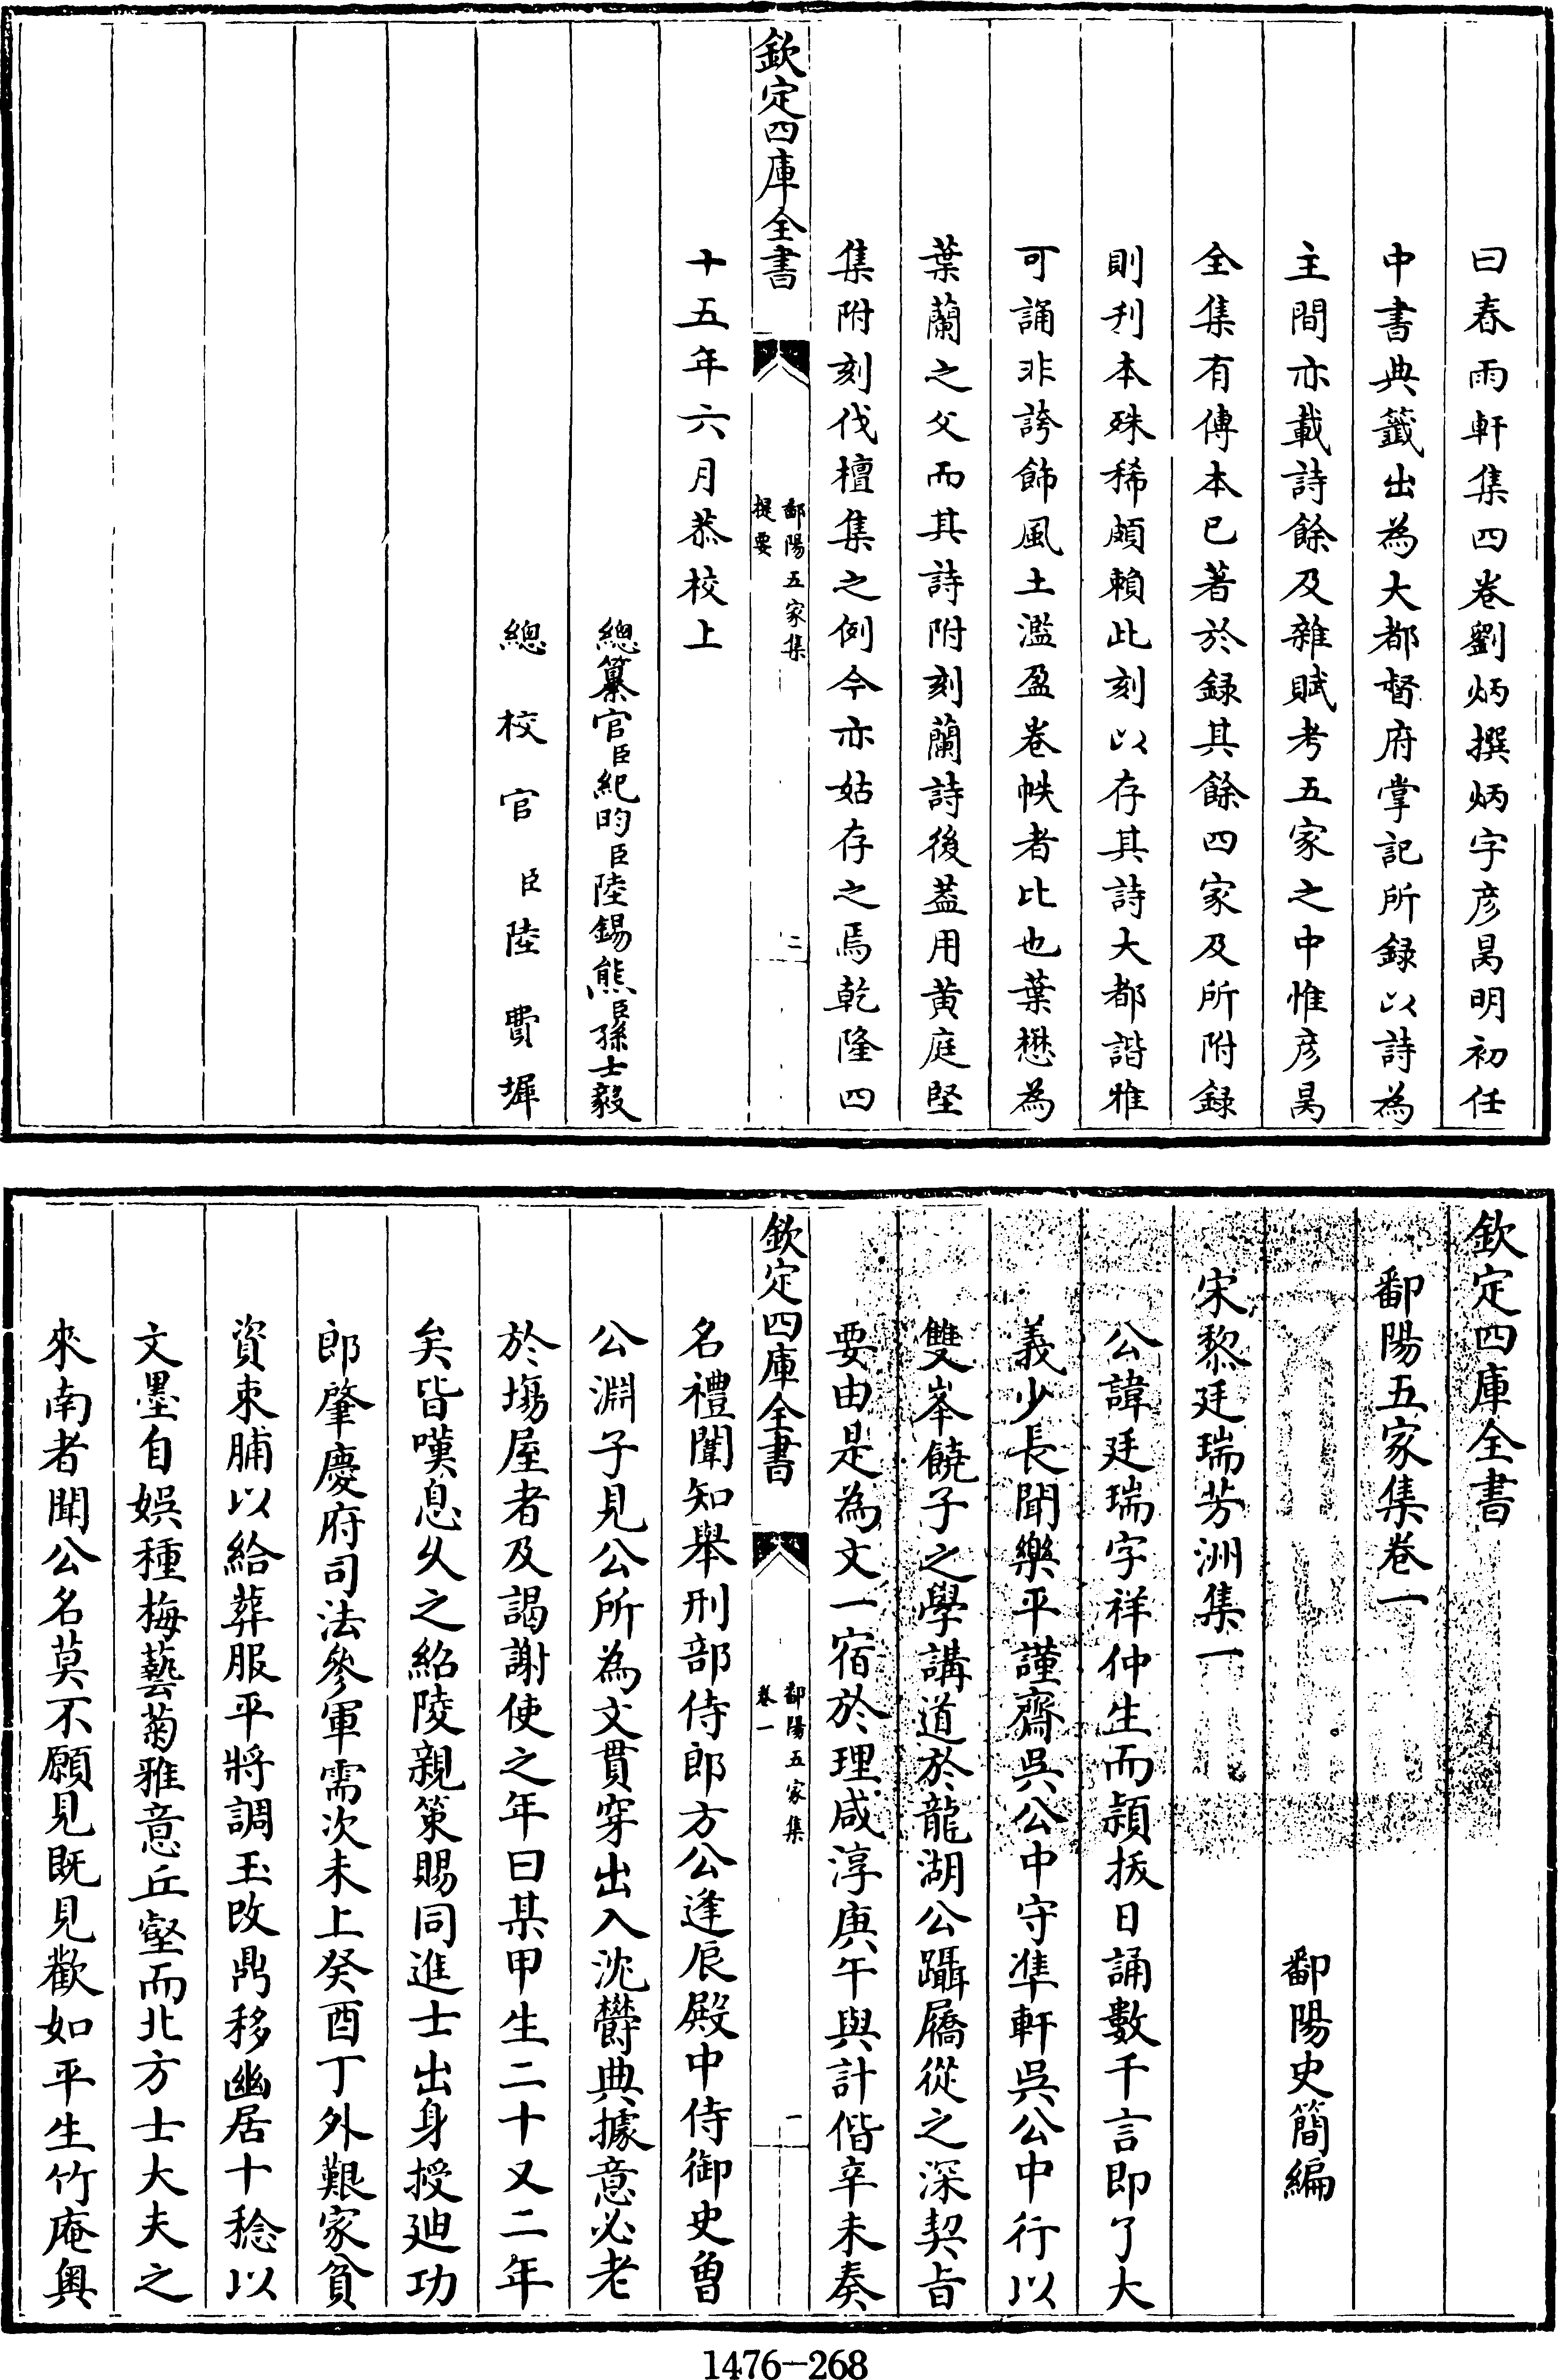 曰春雨軒集四卷劉炳撰炳字彦昺明初任
中書典籤出為大都督府掌記所録以詩為
主間亦載詩餘及雜賦考五家之中惟彦昺
全集有傳本已著於録其餘四家及所附録
則刋本殊稀頗賴此刻以存其詩大都諧雅
可誦非誇飾風土濫盈卷帙者比也葉懋為
葉蘭之父而其詩附刻蘭詩後葢用黄庭堅
集附刻伐檀集之例今亦姑存之焉乾隆四
欽定四庫全書
鄱陽五家集
提要
二
十五年六月恭校上
總纂官臣紀昀臣陸錫熊臣孫士毅
總校官臣陸費墀
欽定四庫全書
鄱陽五家集卷一
鄱陽史簡編
宋黎廷瑞芳洲集一
公諱廷瑞字祥仲生而頴拔日誦數千言即了大
義少長聞樂平謹齋吳公中守凖軒吳公中行以
雙峯饒子之學講道於龍湖公躡屩從之深契旨
要由是為文一宿於理咸淳庚午與計偕辛未奏
欽定四庫全書
鄱陽五家集
卷一
一
名禮闈知舉刑部侍郎方公逢辰殿中侍御史曾
公淵子見公所為文貫穿出入沈欝典據意必老
於塲屋者及謁謝使之年曰某甲生二十又二年
矣皆嘆息久之紹陵親策賜同進士出身授廸功
郎肇慶府司法參軍需次未上癸酉丁外艱家貧
資束脯以給葬服平將調玉改鼎移幽居十稔以
文墨自娯種梅藝菊雅意丘壑而北方士大夫之
來南者聞公名莫不願見既見歡如平生竹庵奥
1476-268